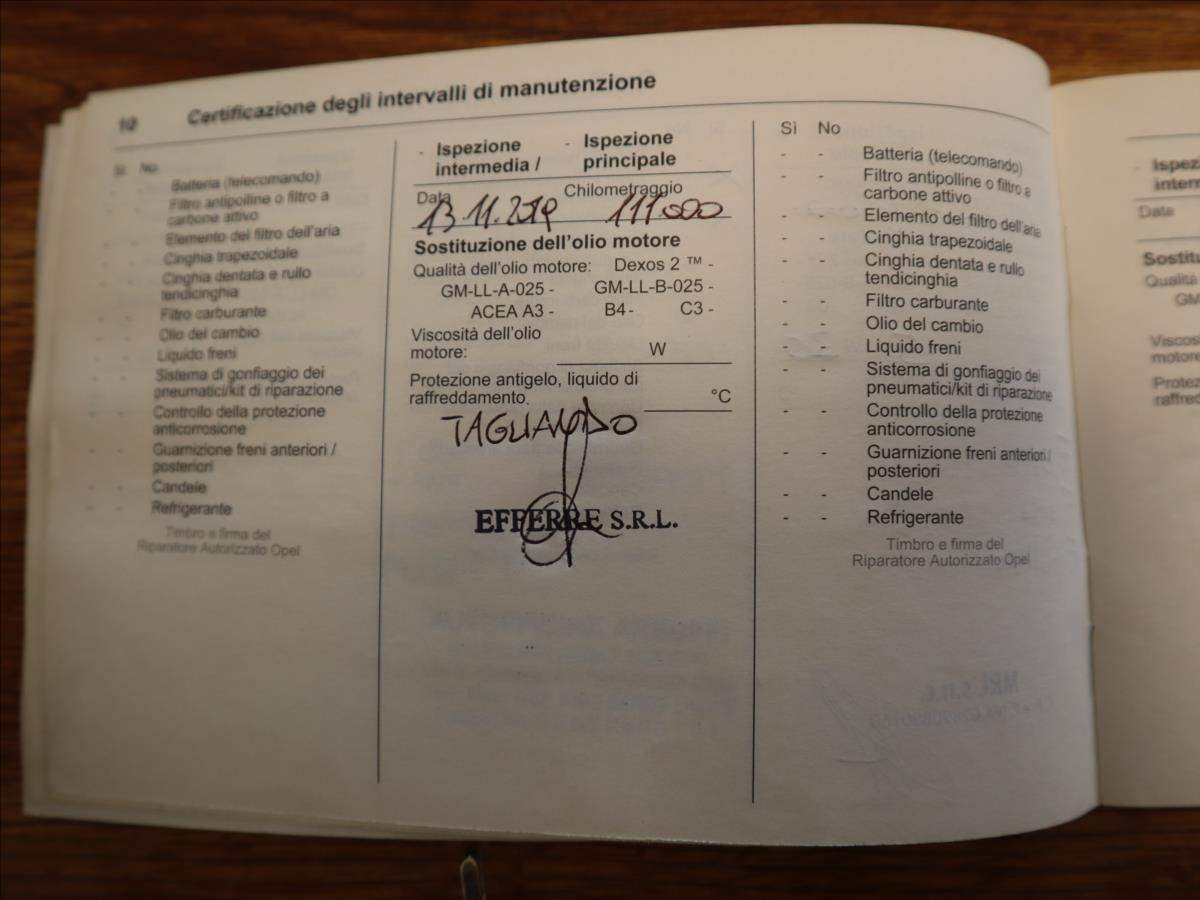 10 Certificazione degli intervalli di manutenzione
Sì No
- - Batteria (telecomando)
- - Filtro antipolline o filtro a
carbone attivo
- - Elemento del filtro dell'aria
- - Cinghia trapezoidale
- - Cinghia dentata e rullo
tendicinghia
- - Filtro carburante
- - Olio del cambio
- - Liquido freni
- - Sistema di gonfiaggio dei
pneumatici/kit di riparazione
- - Controllo della protezione
anticorrosione
- - Guarnizione freni anteriori /
posteriori
- - Candele
- - Refrigerante
Timbro e firma del
Riparatore Autorizzato Opel
- Ispezione - Ispezione
intermedia / principale
Data Chilometraggio
13.11.2019 111000
Sostituzione dell'olio motore
Qualità dell'olio motore: Dexos 2 ™ -
GM-LL-A-025 - GM-LL-B-025 -
ACEA A3 - B4 - C3 -
Viscosità dell'olio
motore: W
Protezione antigelo, liquido di
raffreddamento. °C
TAGLIANDO
EFFERRE S.R.L.
Sì No
- - Batteria (telecomando)
- - Filtro antipolline o filtro a
carbone attivo
- - Elemento del filtro dell'aria
- - Cinghia trapezoidale
- - Cinghia dentata e rullo
tendicinghia
- - Filtro carburante
- - Olio del cambio
- - Liquido freni
- - Sistema di gonfiaggio dei
pneumatici/kit di riparazione
- - Controllo della protezione
anticorrosione
- - Guarnizione freni anteriori /
posteriori
- - Candele
- - Refrigerante
Timbro e firma del
Riparatore Autorizzato Opel
- Ispez
interm
Data
Sostitu
Qualità
GM
Viscos
motore
Protez
raffred